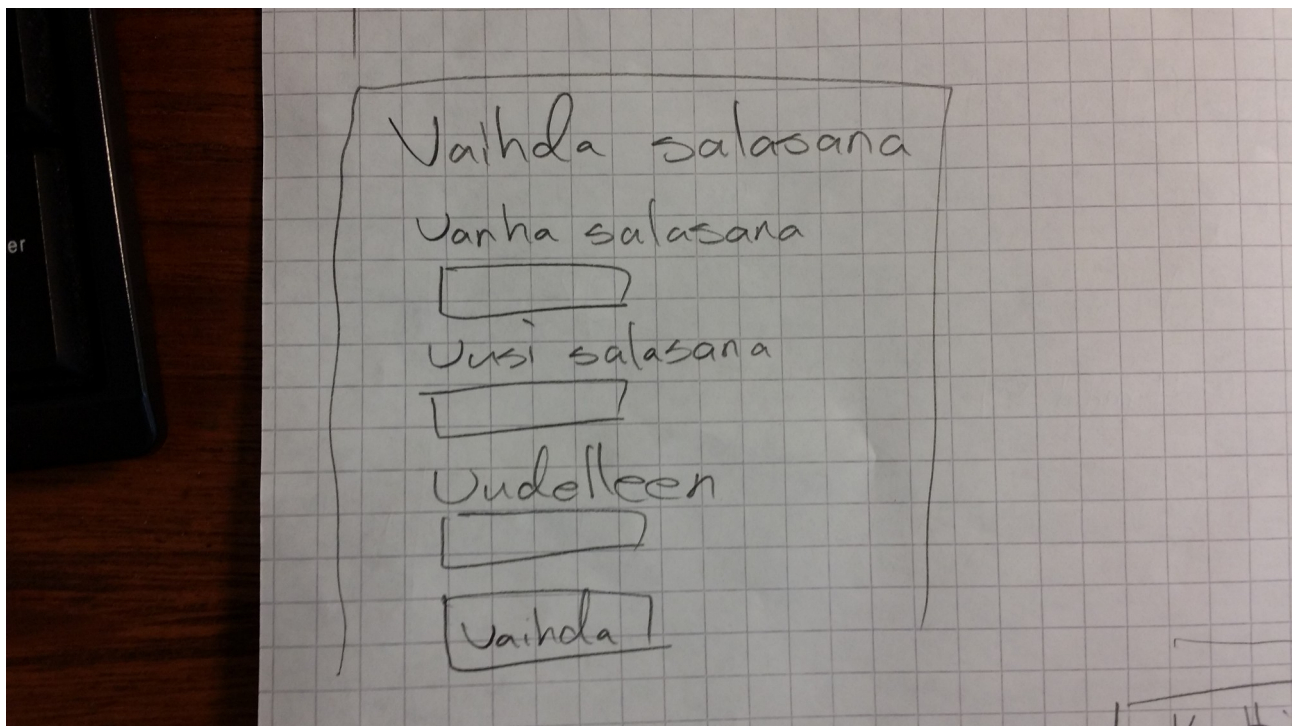 er
Vaihda salasana
Vanha salasana
Uusi salasana
Uudelleen
Vaihda